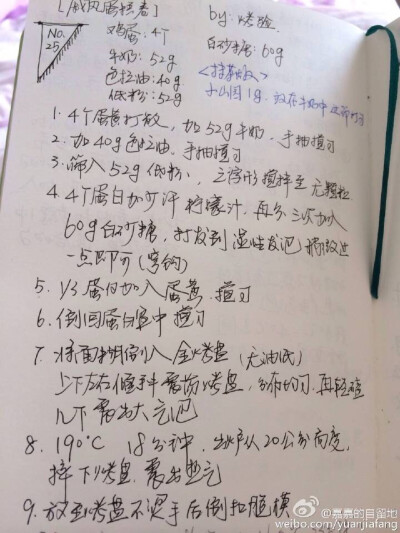 [戚风蛋糕卷]
by: 烤脸
No.
25
鸡蛋: 4个
牛奶: 52g
色拉油: 40g
低粉: 52g
白砂糖: 60g
<抹茶
1g. 放在牛奶中
1. 4个蛋黄打散, 加52g牛奶, 手抽搅匀
2. 加40g色拉油, 手抽搅匀
3. 筛入52g低粉, 之字形搅拌至无颗粒
4. 4个蛋白加几汗柠檬汁, 再分三次加入
60g白砂糖, 打发到湿性发泡稍微过
一点即可(弯钩)
5. 1/3蛋白加入蛋黄, 搅匀
6. 倒回蛋白盆中搅匀
7. 将面糊倒入金烤盘(无油纸)
上下左右倾斜震荡烤盘, 分布均匀. 再轻磕
几下震出大气泡
8. 190℃ 18分钟. 出炉从20公分高度,
摔下烤盘. 震出热气
9. 放至烤盘不烫手后倒扣脱模
嘉嘉的自留地
weibo.com/yuanjiafang